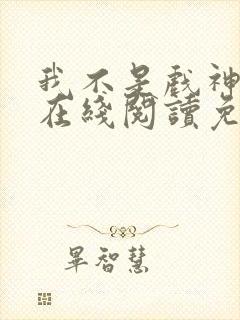 我不是戲神
在綫閱讀免
畢智慧